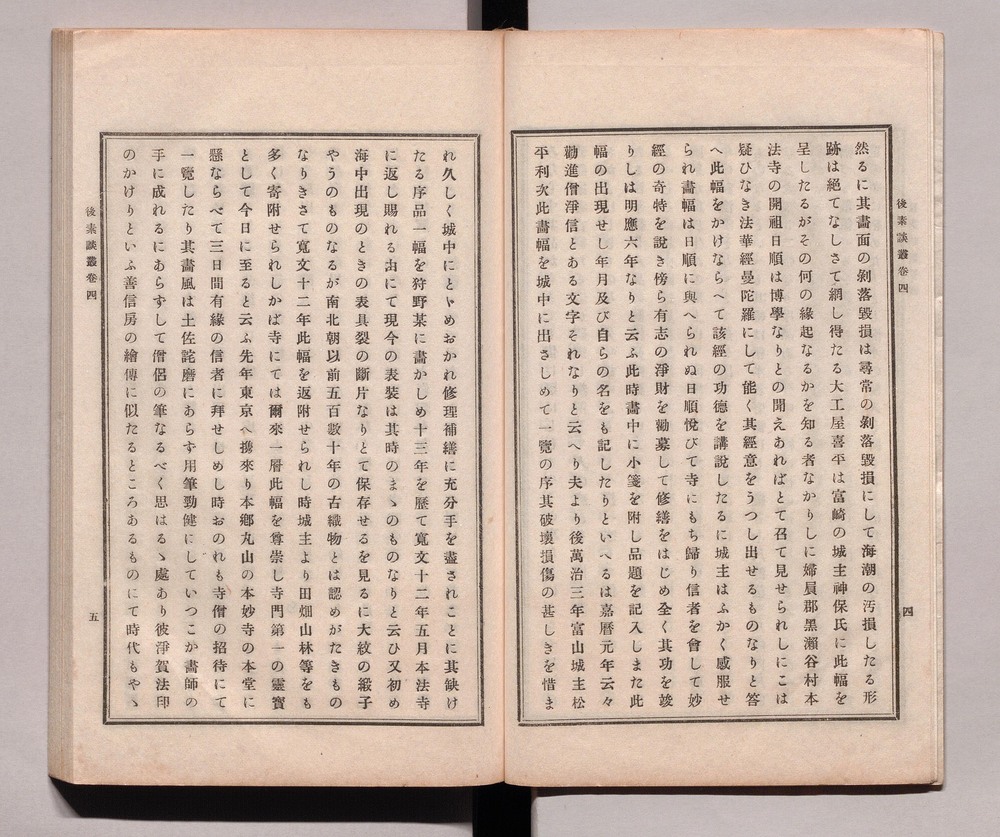 後素談叢卷四
四
然るに其畵面の剝落毀損は尋常の剝落毀損にして海潮の汚損したる形
跡は絕てなしさて網し得たる大工屋喜平は富崎の城主神保氏に此幅を
呈したるがその何の緣起なるかを知る者なかりしに婦負郡黑瀨谷村本
法寺の開祖日順は博學なりとの聞えあればとて召て見せられしにこは
疑ひなき法華經曼陀羅にして能く其經意をうつし出せるものなりと答
へ此幅をかけならへて該經の功德を講說したるに城主はふかく感服せ
られ畵幅は日順に與へられぬ日順悅びて寺にもち歸り信者を會して妙
經の奇特を說き傍ら有志の淨財を勸募して修繕をはじめ全く其功を竣
りしは明應六年なりと云ふ此時畵中に小箋を附し品題を記入しまた此
幅の出現せし年月及び自らの名をも記したりといへるは嘉曆元年云々
勸進僧淨信とある文字それなりと云へり夫より後萬治三年富山城主松
平利次此畵幅を城中に出さしめて一覽の序其破壞損傷の甚しきを惜ま
れ久しく城中にとゞめおかれ修理補繕に充分手を盡されことに其缺け
たる序品一幅を狩野某に畵かしめ十三年を歷て寬文十二年五月本法寺
に返し賜れる由にて現今の表裝は其時のまゝのものなりと云ひ又初め
海中出現のときの表具裂の斷片なりとて保存せるを見るに大紋の緞子
やうのものなるが南北朝以前五百數十年の古織物とは認めがたきもの
なりきさて寬文十二年此幅を返附せられし時城主より田畑山林等をも
多く寄附せられしかば寺にては爾來一層此幅を尊崇し寺門第一の靈寶
として今日に至ると云ふ先年東京へ携來り本鄕丸山の本妙寺の本堂に
懸ならべて三日間有緣の信者に拜せしめし時おのれも寺僧の招待にて
一覽したり其畵風は土佐詫磨にあらす用筆勁健にしていつこか畵師の
手に成れるにあらずして僧侶の筆なるべく思はるゝ處あり彼淨賀法印
のかけりといふ善信房の繪傳に似たるところあるものにて時代もやゝ
後素談叢卷四
五